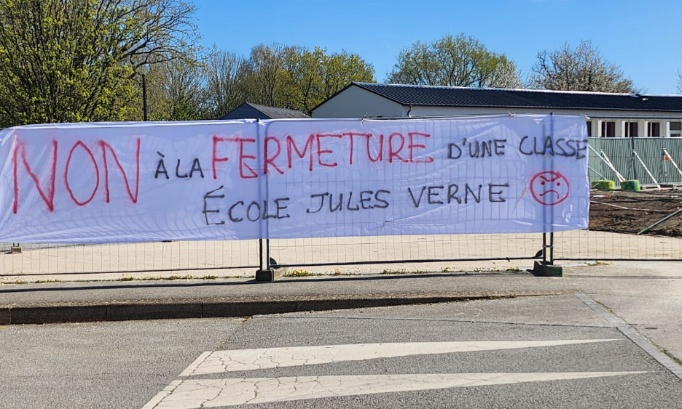 NON À LA FERMETURE D'UNE CLASSE
ÉCOLE JULES VERNE